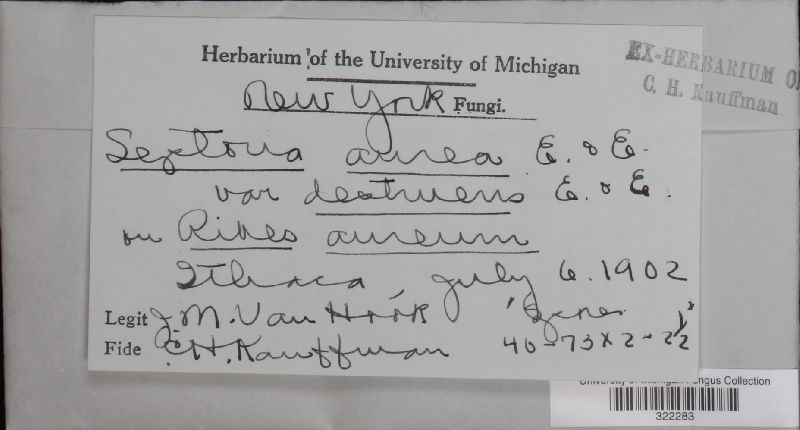 Herbarium of the University of Michigan
EX-HERBARIUM O
C. H. Kauffman
New York Fungi.
Septoria aurea E. & E.
var destruens E. & E.
on Ribes aureum
Ithaca, July 6. 1902
Legit J. M. Van Hook
Fide C. H. Kauffman 40-73 x 2-2½
University of Michigan Fungus Collection
322283